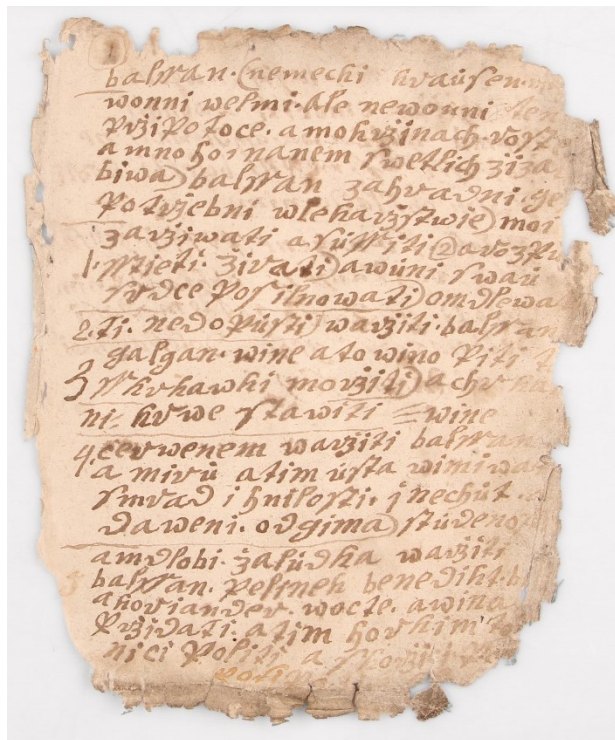 balssan. (nemecki krausen
wonni welmi. ale newonni ten
Przi Potoce. a mokrzinach. rost
a mnoho nanem swetlich ziza
biwa) balssan zahradni. ge
Potrzebni wlekarzstwie) moi
zarziwati a sussiti (2) a rozpu
1. sstieti. zirati) a wuni swau
srdce Posilnowati) omdlewa
2. ti. nedopusti) warziti. balssan
galgan. wine a to wino Piti
3 sskrkawki morziti) a chrka
ni. krwe stawiti = wine
4. cerwenem warziti balssan
a miru a tim usta wimiwa
smrad i hnilosti. i nechut.
daweni. odgima) studenost
a mdlobi. zaludka warziti
5 balssan. Pelinek benedikt. b
a koriander. wocte. a wina
Przidati. a tim horkim
nici Politi a